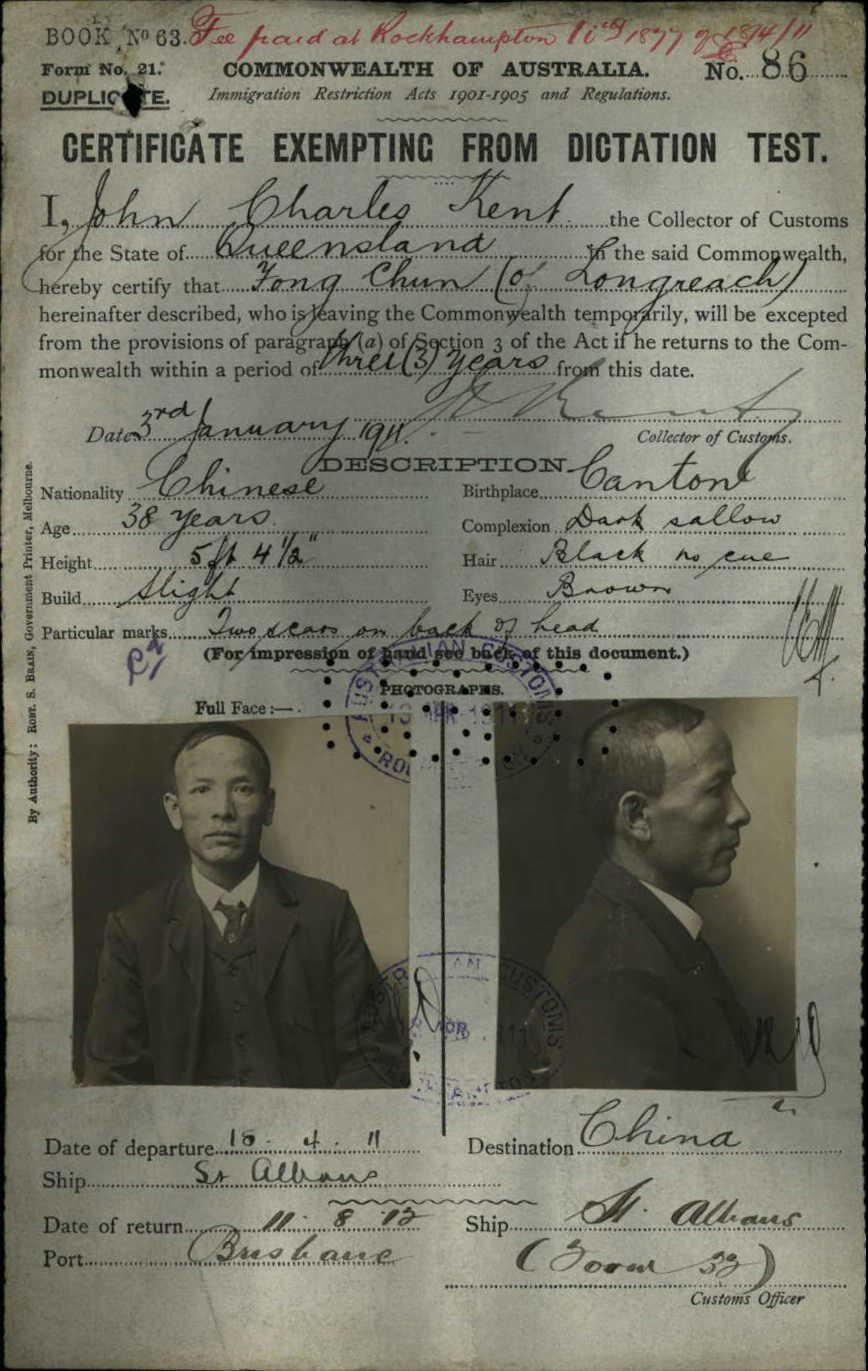 BOOK No 63. Fee paid at Rockhampton
Form No. 21. COMMONWEALTH OF AUSTRALIA. No. 86
DUPLICATE. Immigration Restriction Acts 1901-1905 and Regulations.
CERTIFICATE EXEMPTING FROM DICTATION TEST.
I, John Charles Kent the Collector of Customs
for the State of Queensland in the said Commonwealth,
hereby certify that Fong Chun (of Longreach)
hereinafter described, who is leaving the Commonwealth temporarily, will be excepted
from the provisions of paragraph (a) of Section 3 of the Act if he returns to the Com-
monwealth within a period of three (3) years from this date.
Date 3rd January 1911. Kent
Collector of Customs.
DESCRIPTION
Nationality Chinese Birthplace Canton
Age 38 years. Complexion Dark sallow
Height 5 ft 4 1/2" Hair Black no cue
Build Slight Eyes Brown
Particular marks Two scars on back of head
(For impression of hand see back of this document.)
PHOTOGRAPHS.
Full Face :—
AUSTRALIAN CUSTOMS
CUSTOMS
Date of departure 4. 11 Destination China
Ship St Albans
Date of return 11. 8. 12 Ship St. Albans
Port Brisbane (Form 32)
Customs Officer
By Authority: ROBT. S. BRAIN, Government Printer, Melbourne.